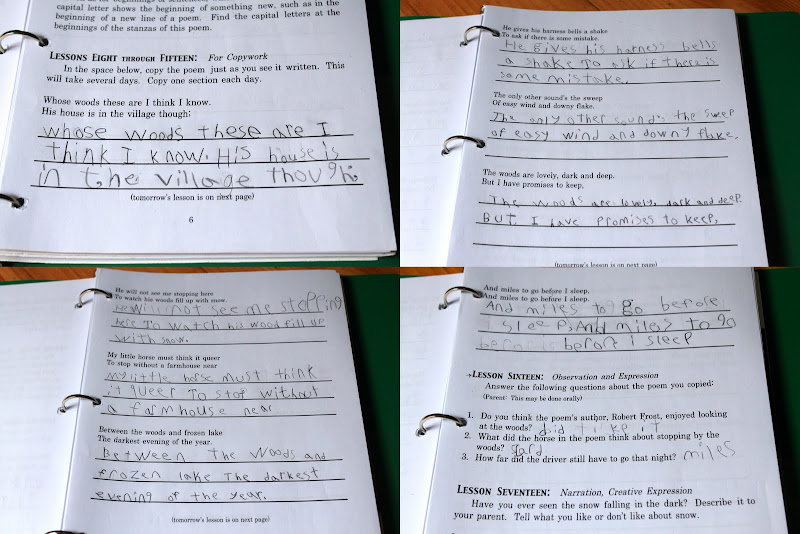 capital letter shows the beginning of something new, such as in the
beginning of a new line of a poem. Find the capital letters at the
beginnings of the stanzas of this poem.
LESSONS EIGHT THROUGH FIFTEEN: For Copywork
In the space below, copy the poem just as you see it written. This
will take several days. Copy one section each day.
Whose woods these are I think I know.
His house is in the village though;
whose woods these are I
think I know. His house is
in the village though;
(tomorrow's lesson is on next page)
6
He gives his harness bells a shake
To ask if there is some mistake.
He Gives his harness bells
a shake To ask if there is
some mistake.
The only other sound's the sweep
Of easy wind and downy flake.
The only other sound's the sweep
of easy wind and downy flake.
The woods are lovely, dark and deep.
But I have promises to keep,
The woods are lovely, dark and deep
BUT I have Promises to keep,
(tomorrow's lesson is on next page)
He will not see me stopping here
To watch his woods fill up with snow.
He Will not see me stopping
here To watch his wood fill up
with snow.
My little horse must think it queer
To stop without a farmhouse near
My little horse must think
it queer To stop without
a farmhouse near
Between the woods and frozen lake
The darkest evening of the year.
Between the woods and
frozen lake The darkest
evening of the year.
(tomorrow's lesson is on next page)
And miles to go before I sleep,
And miles to go before I sleep.
And miles to go before
I sleep, And miles to go
before I sleep
LESSON SIXTEEN: Observation and Expression
Answer the following questions about the poem you copied:
(Parent: This may be done orally)
1. Do you think the poem's author, Robert Frost, enjoyed looking
at the woods? did like it
2. What did the horse in the poem think about stopping by the
woods?
3. How far did the driver still have to go that night? miles
LESSON SEVENTEEN: Narration, Creative Expression
Have you ever seen the snow falling in the dark? Describe it to
your parent. Tell what you like or don't like about snow.